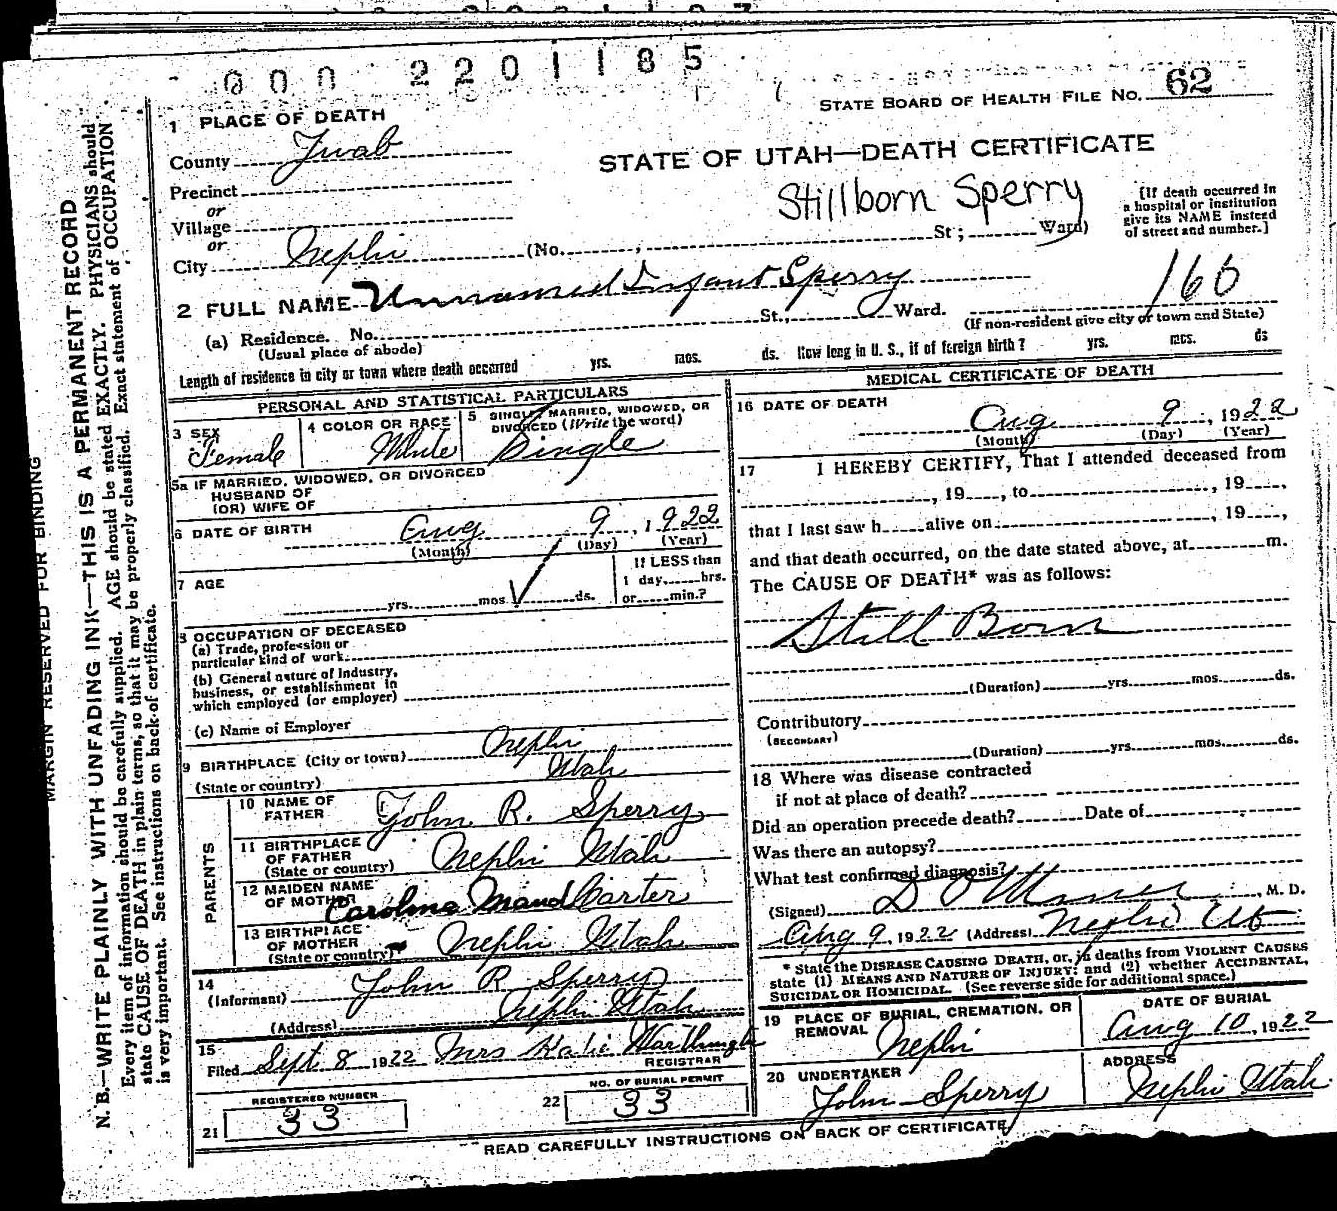 000 2201185
STATE BOARD OF HEALTH FILE NO. 62
1 PLACE OF DEATH
County Juab
STATE OF UTAH—DEATH CERTIFICATE
Precinct
or
Stillborn Sperry
[If death occurred in
a hospital or institution
give its NAME instead
of street and number.]
Village
or
City Nephi (No. , St; Ward)
2 FULL NAME Unnamed Infant Sperry
160
(a) Residence. No. St., Ward.
(Usual place of abode) (If non-resident give city or town and State)
Length of residence in city or town where death occurred yrs. mos. ds. How long in U. S., if of foreign birth? yrs. mos. ds
PERSONAL AND STATISTICAL PARTICULARS
3 SEX
Female
4 COLOR OR RACE
White
5 SINGLE, MARRIED, WIDOWED, OR
DIVORCED (Write the word)
Single
5a IF MARRIED, WIDOWED, OR DIVORCED
HUSBAND OF
(OR) WIFE OF
6 DATE OF BIRTH Aug 9, 1922
(Month) (Day) (Year)
7 AGE
yrs. mos. ds.
If LESS than
1 day, hrs.
or min.?
8 OCCUPATION OF DECEASED
(a) Trade, profession or
particular kind of work
(b) General nature of Industry,
business, or establishment in
which employed (or employer)
(c) Name of Employer
9 BIRTHPLACE (City or town) Nephi
(State or country) Utah
PARENTS
10 NAME OF
FATHER John R. Sperry
11 BIRTHPLACE
OF FATHER
(State or country) Nephi Utah
12 MAIDEN NAME
OF MOTHER Carolina Maud Carter
13 BIRTHPLACE
OF MOTHER
(State or country) Nephi Utah
14
(Informant) John R Sperry
(Address) Nephi Utah
15
Filed Sept. 8 1922 Mrs Katie
REGISTRAR
REGISTERED NUMBER
21 33
NO. OF BURIAL PERMIT
22 33
MEDICAL CERTIFICATE OF DEATH
16 DATE OF DEATH
Aug 9, 1922
(Month) (Day) (Year)
17 I HEREBY CERTIFY, That I attended deceased from
, 19 , to , 19 ,
that I last saw h alive on , 19 ,
and that death occurred, on the date stated above, at m.
The CAUSE OF DEATH* was as follows:
Still Born
(Duration) yrs. mos. ds.
Contributory
(SECONDARY)
(Duration) yrs. mos. ds.
18 Where was disease contracted
if not at place of death?
Did an operation precede death? Date of
Was there an autopsy?
What test confirmed diagnosis?
(Signed) , M. D.
Aug 9, 1922 (Address) Nephi Ut
* State the DISEASE CAUSING DEATH, or, in deaths from VIOLENT CAUSES
state (1) MEANS AND NATURE OF INJURY; and (2) whether ACCIDENTAL,
SUICIDAL OR HOMICIDAL. (See reverse side for additional space.)
19 PLACE OF BURIAL, CREMATION, OR
REMOVAL Nephi
DATE OF BURIAL
Aug 10, 1922
20 UNDERTAKER
John Sperry
ADDRESS
Nephi Utah
READ CAREFULLY INSTRUCTIONS ON BACK OF CERTIFICATE
MARGIN RESERVED FOR BINDING
N. B.—WRITE PLAINLY WITH UNFADING INK—THIS IS A PERMANENT RECORD
Every item of information should be carefully supplied. AGE should be stated EXACTLY. PHYSICIANS should
state CAUSE OF DEATH in plain terms, so that it may be properly classified. Exact statement of OCCUPATION
is very important. See instructions on back of certificate.